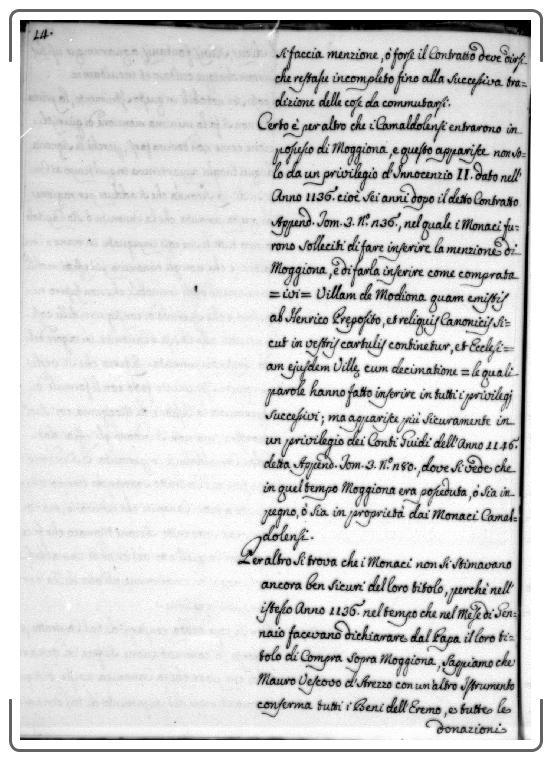 14.
si faccia menzione, ò forse il Contratto deve dirsi
che restasse incompleto fino alla successiva tra-
dizione delle cose da commutarsi.
Certo è per altro che i Camaldolensi entrarono in
possesso di Moggiona, e questo apparisce non so-
lo da un privilegio d'Innocenzio II. dato nell'
Anno 1136. cioè sei anni dopo il detto Contratto
Append. Tom. 3. N.º 236., nel quale i Monaci fu-
rono solleciti di fare inserire la menzione di
Moggiona, è di farla inserire come comprata
= ivi = Villam de Modiona quam emistis
ab Henrico Preposito, et reliquis Canonicis si-
cut in vestris cartulis continetur, et Ecclesi=
am ejusdem Villę cum decimatione = le quali
parole hanno fatto inserire in tutti i privilegj
successivi; ma apparisce più sicuramente in
un privilegio dei Conti Guidi dell'Anno 1146.
detta Append. Tom. 3. N.º 180., dove si vede che
in quel tempo Moggiona era posseduta, ò sia in
pegno, ò sia in proprietà dai Monaci Camal-
dolensi.
Per altro si trova che i Monaci non si stimavano
ancora ben sicuri del loro titolo, perchè nell'
istesso Anno 1136. nel tempo che nel Mese di Gen-
naio facevano dichiarare dal Papa il loro ti-
tolo di Compra sopra Moggiona, sappiamo che
Mauro Vescovo d'Arezzo con un'altro Istrumento
conferma tutti i Beni dell'Eremo, e tutte le
donazioni